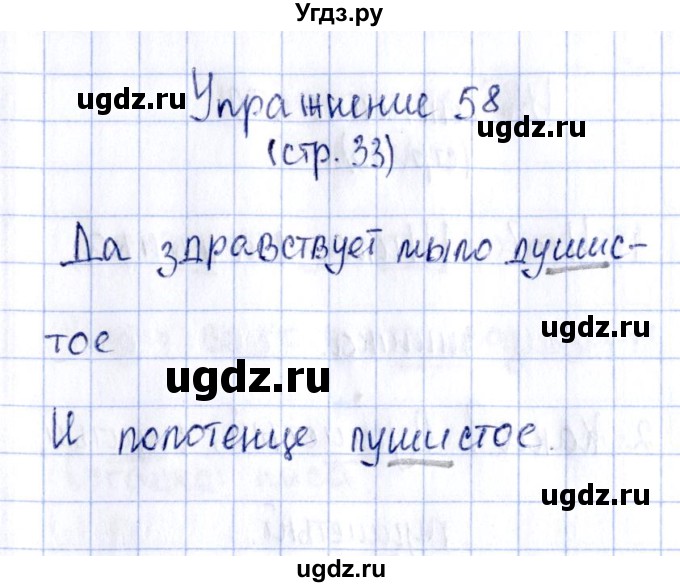 Угдз.ру
Упражнение 58
ugdz.ru ugdz.ru
(стр. 33)
Да здравствует мыло душис-
тое
ugdz.ru
ugdz.ru
И полотенце пушистое.
ugdz.ru
ugdz.ru